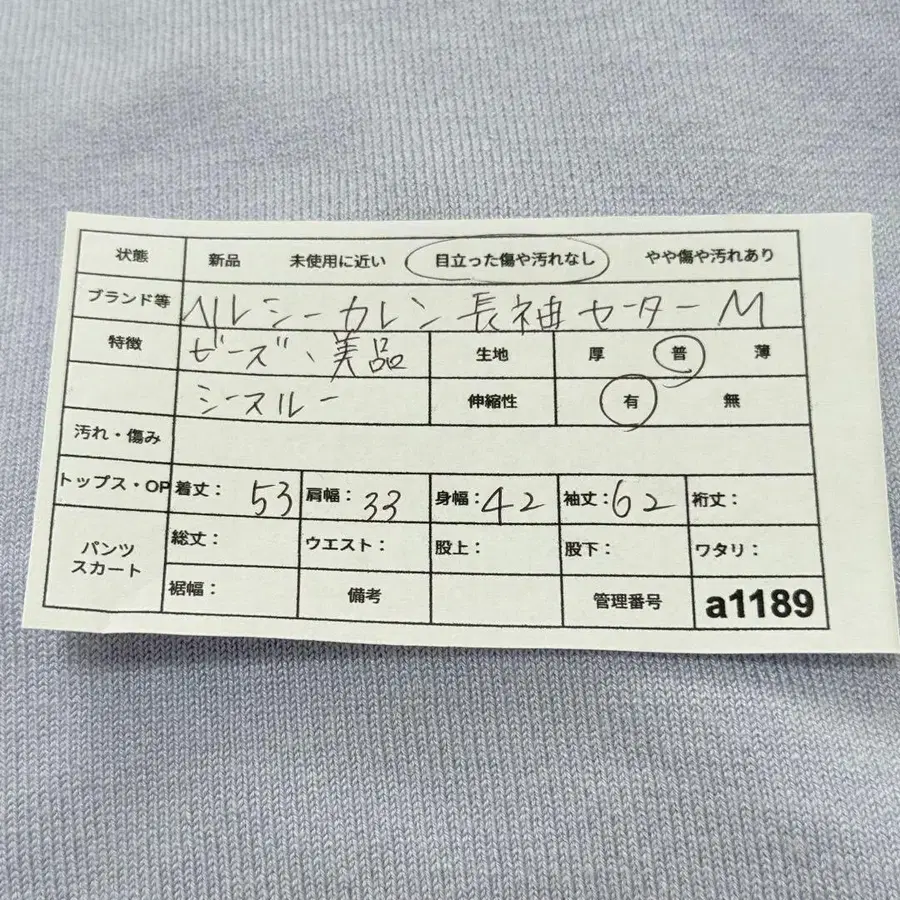 状態 新品 未使用に近い 目立った傷や汚れなし やや傷や汚れあり
ブランド等 ペルシーカレン 長袖セーター M
特徴 ビーズ、美品 生地 厚 普 薄
シースルー 伸縮性 有 無
汚れ・傷み
トップス・OP 着丈: 53 肩幅: 33 身幅: 42 袖丈: 62 裄丈:
パンツ スカート 総丈: ウエスト: 股上: 股下: ワタリ:
裾幅: 備考 管理番号 a1189